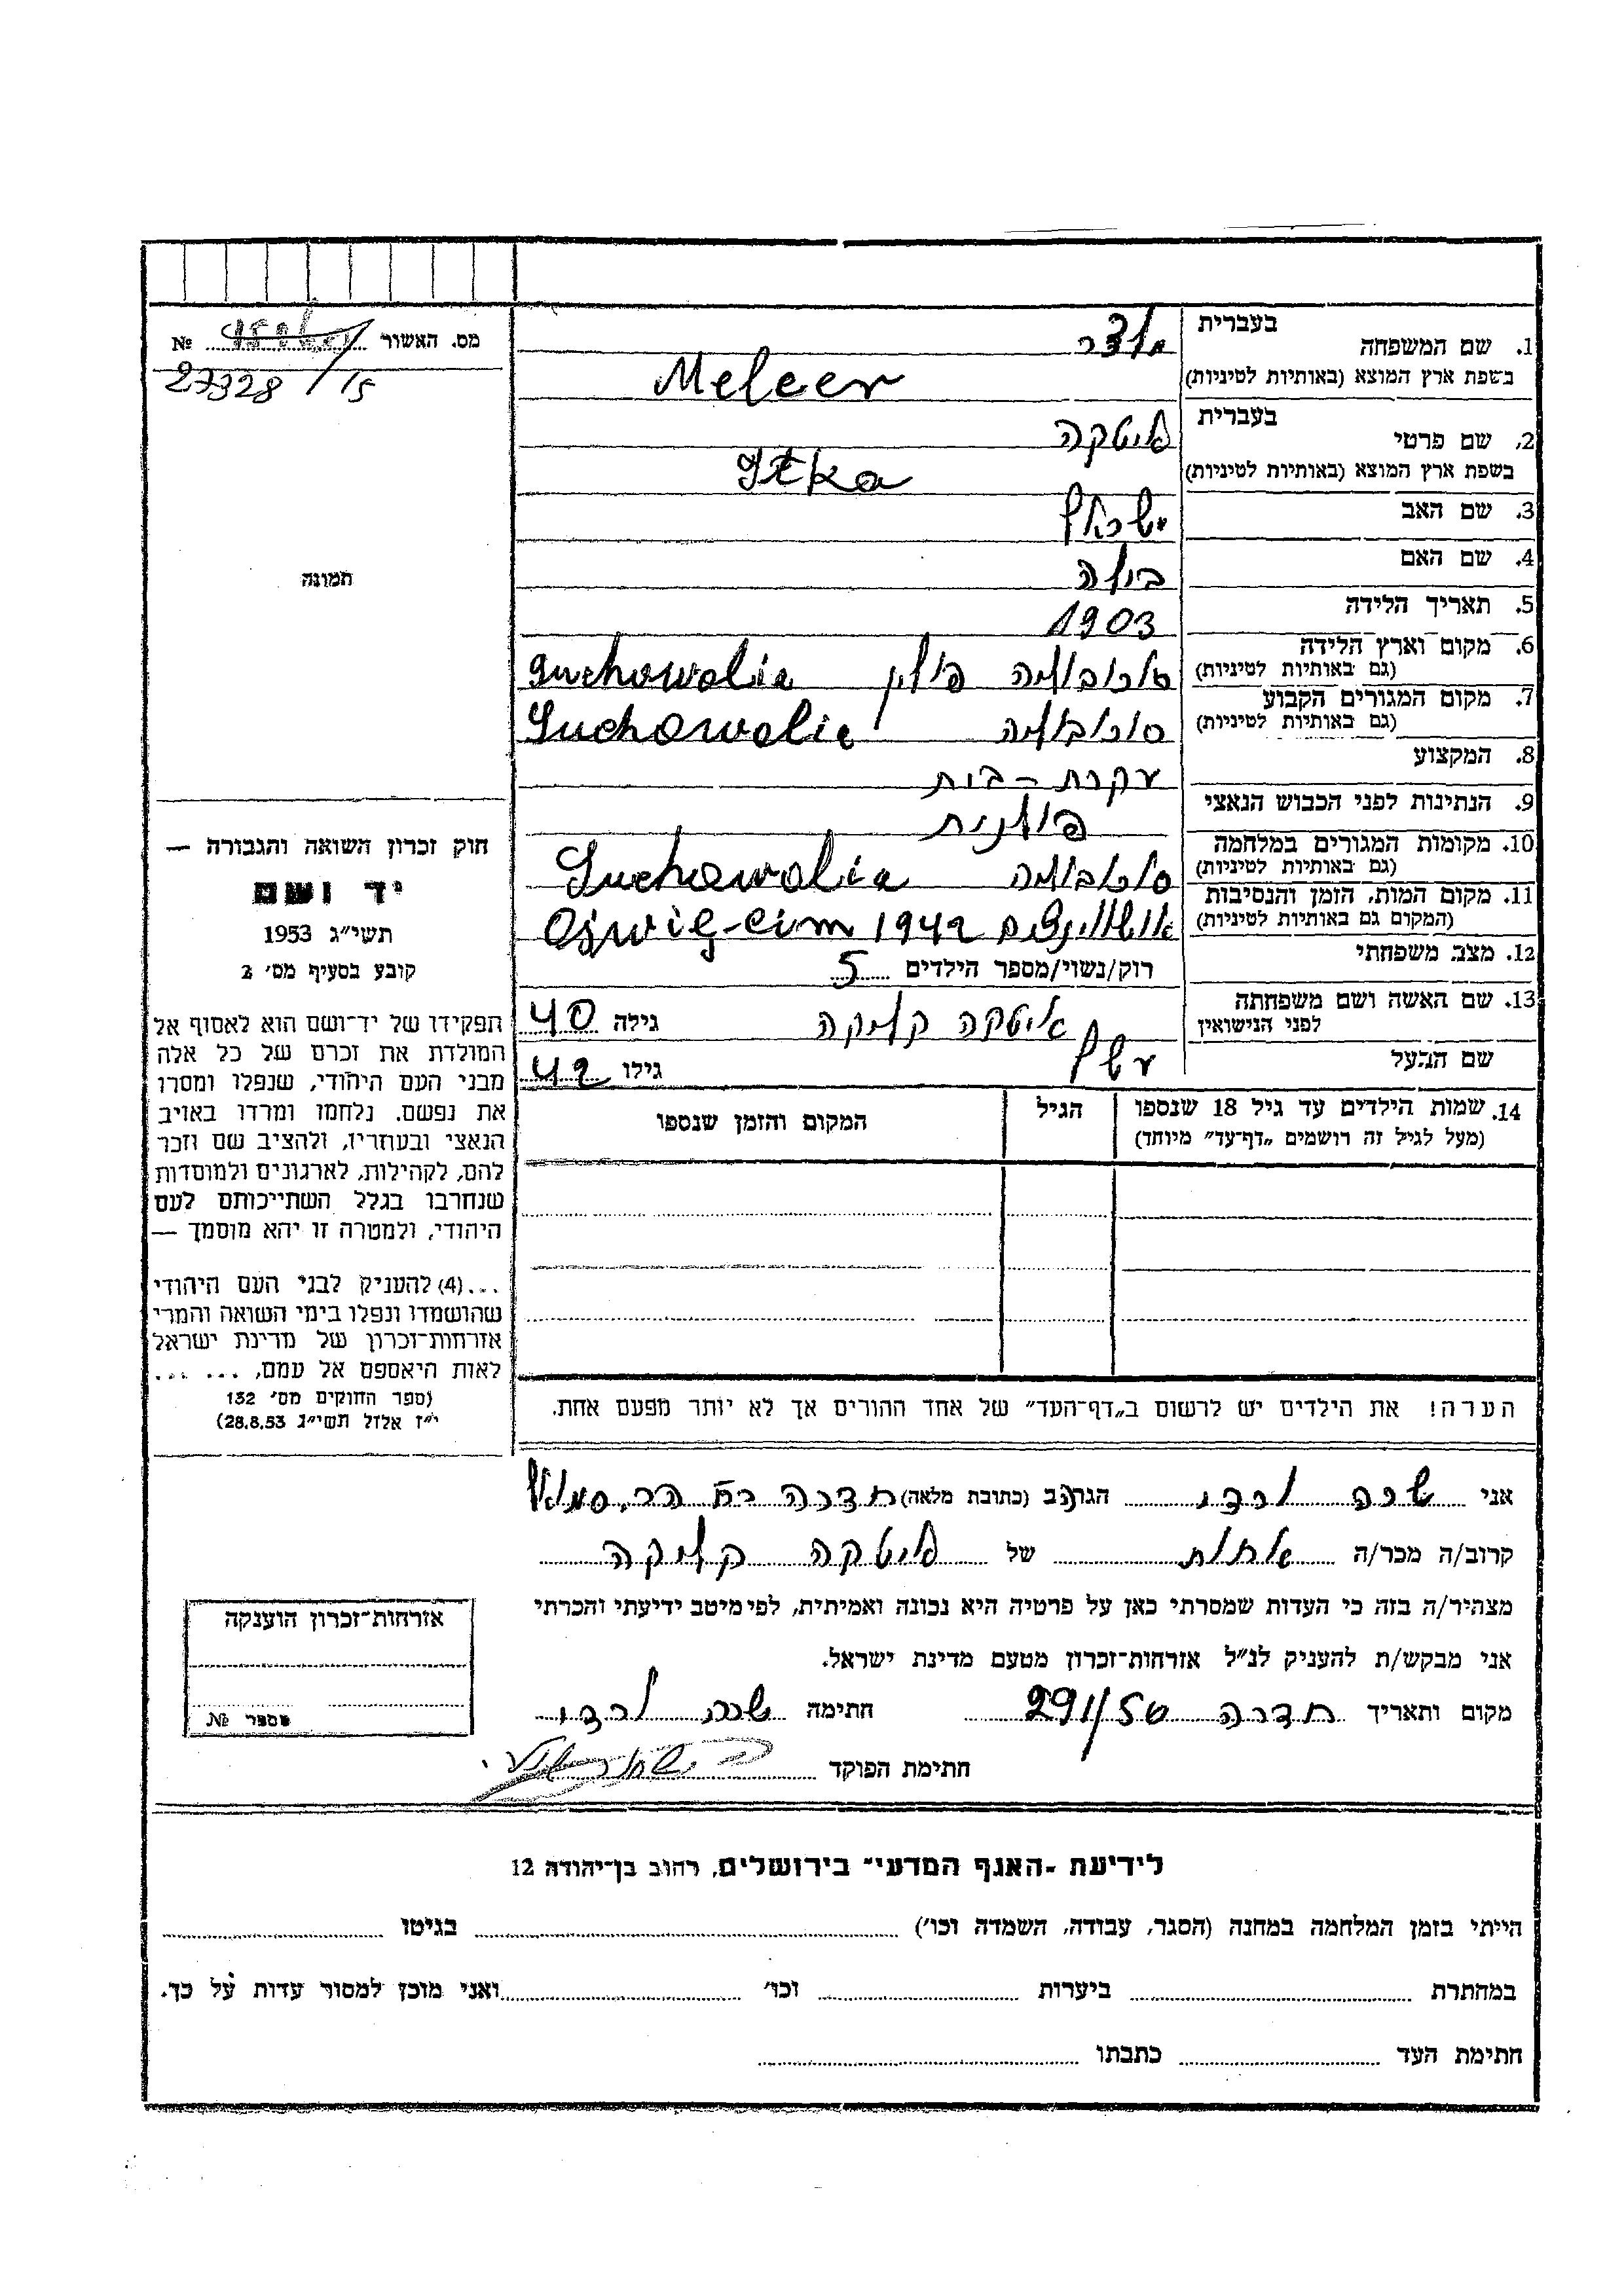 בעברית
1. שם המשפחה מלצר
בשפת ארץ המוצא (באותיות לטיניות) Meleer
בעברית
2. שם פרטי איטקה
בשפת ארץ המוצא (באותיות לטיניות) Itka
3. שם האב ישראל
4. שם האם בילה
5. תאריך הלידה 1903
6. מקום וארץ הלידה סוכובוליה פולין Suchowolia
(גם באותיות לטיניות)
7. מקום המגורים הקבוע סוכובוליה Suchowolia
(גם באותיות לטיניות)
8. המקצוע עקרת-בית
9. הנתינות לפני הכבוש הנאצי פולנית
10. מקומות המגורים במלחמה סוכובוליה Suchowolia
(גם באותיות לטיניות)
11. מקום המות, הזמן והנסיבות 1942
(המקום גם באותיות לטיניות)
12. מצב משפחתי רוק/נשוי/מספר הילדים 5
13. שם האשה ושם משפחתה איטקה גילה 40
לפני הנישואין
שם הבעל גילו 42
14. שמות הילדים עד גיל 18 שנספו הגיל המקום והזמן שנספו
(מעל לגיל זה רושמים „דף-עד" מיוחד)
הערה! את הילדים יש לרשום ב„דף-העד" של אחד ההורים אך לא יותר מפעם אחת.
מס. האשור №
27328/15
תמונה
חוק זכרון השואה והגבורה —
יד ושם
תשי"ג 1953
קובע בסעיף מס׳ 2
תפקידו של יד-ושם הוא לאסוף אל
המולדת את זכרם של כל אלה
מבני העם היהודי, שנפלו ומסרו
את נפשם. נלחמו ומרדו באויב
הנאצי ובעוזריו, ולהציב שם וזכר
להם, לקהילות, לארגונים ולמוסדות
שנחרבו בגלל השתייכותם לעם
היהודי, ולמטרה זו יהא מוסמך —
...(4) להעניק לבני העם היהודי
שהושמדו ונפלו בימי השואה והמרי
אזרחות-זכרון של מדינת ישראל
לאות היאספם אל עמם, ... ...
(ספר החוקים מס׳ 132
י"ז אלול תשי"ג 28.8.53)
אני שרה ורדי הגר/ה ב (כתובת מלאה) חדרה
קרוב/ה מכר/ה אחות של איטקה
מצהיר/ה בזה כי העדות שמסרתי כאן על פרטיה היא נכונה ואמיתית, לפי מיטב ידיעתי והכרתי
אני מבקש/ת להעניק לנ"ל אזרחות-זכרון מטעם מדינת ישראל.
מקום ותאריך חדרה חתימה שרה ורדי
חתימת הפוקד
אזרחות-זכרון הוענקה
מספר №
לידיעת ״האגף המדעי״ בירושלים, רחוב בן-יהודה 12
הייתי בזמן המלחמה במחנה (הסגר, עבודה, השמדה וכו׳) בגיטו
במחתרת ביערות וכו׳ ואני מוכן למסור עדות על כך.
חתימת העד כתבתו